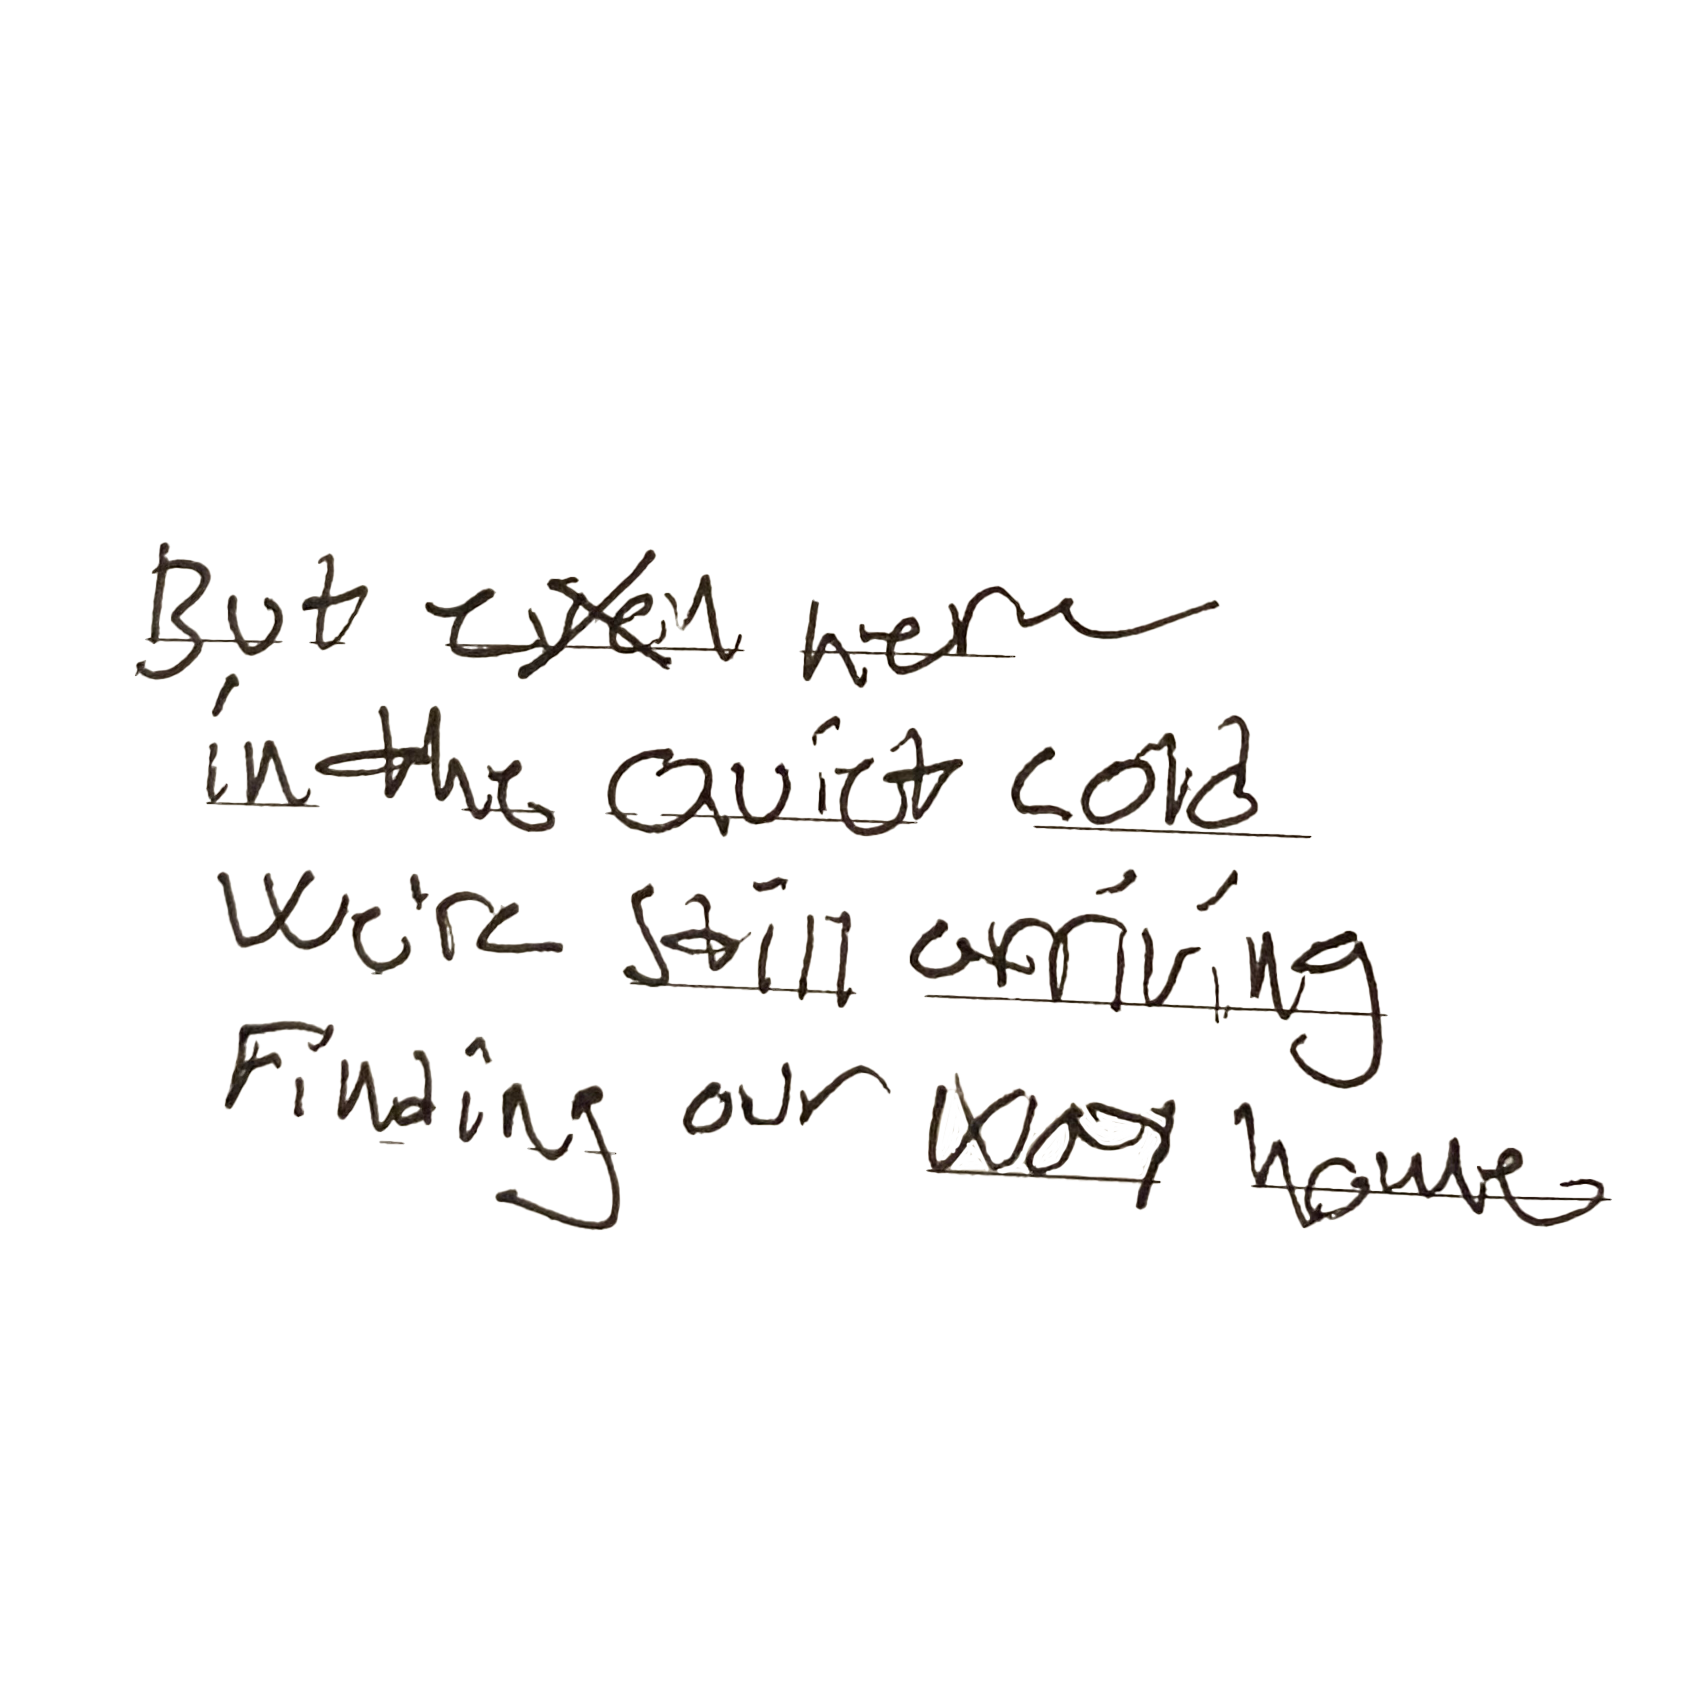 But even here
in the Quiet cold
We're still arriving
Finding our way home